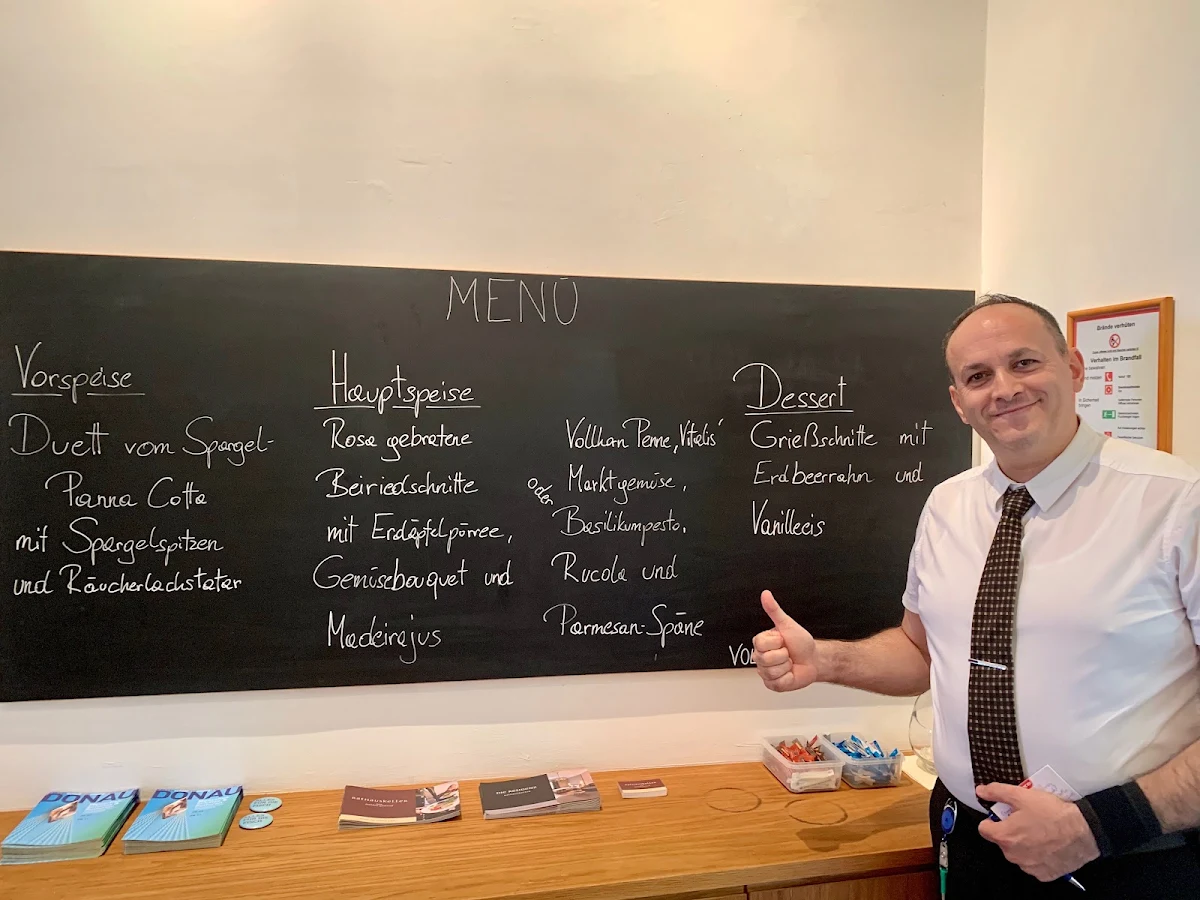 MENÜ
Vorspeise
Duett vom Spargel-
Panna Cotta
mit Spargelspitzen
und Räucherlachstatar
Hauptspeise
Rosa gebratene
Beiriedschnitte
mit Erdäpfelpüree,
Gemüsebouquet und
Madeirajus
oder
Vollkorn Penne „Vitalis"
Marktgemüse,
Basilikumpesto,
Rucola und
Parmesan-Späne
Dessert
Grießschnitte mit
Erdbeerrahm und
Vanilleeis
Brände verhüten
Verhalten im Brandfall
DONAU
DONAU
RATHAUSKELLER